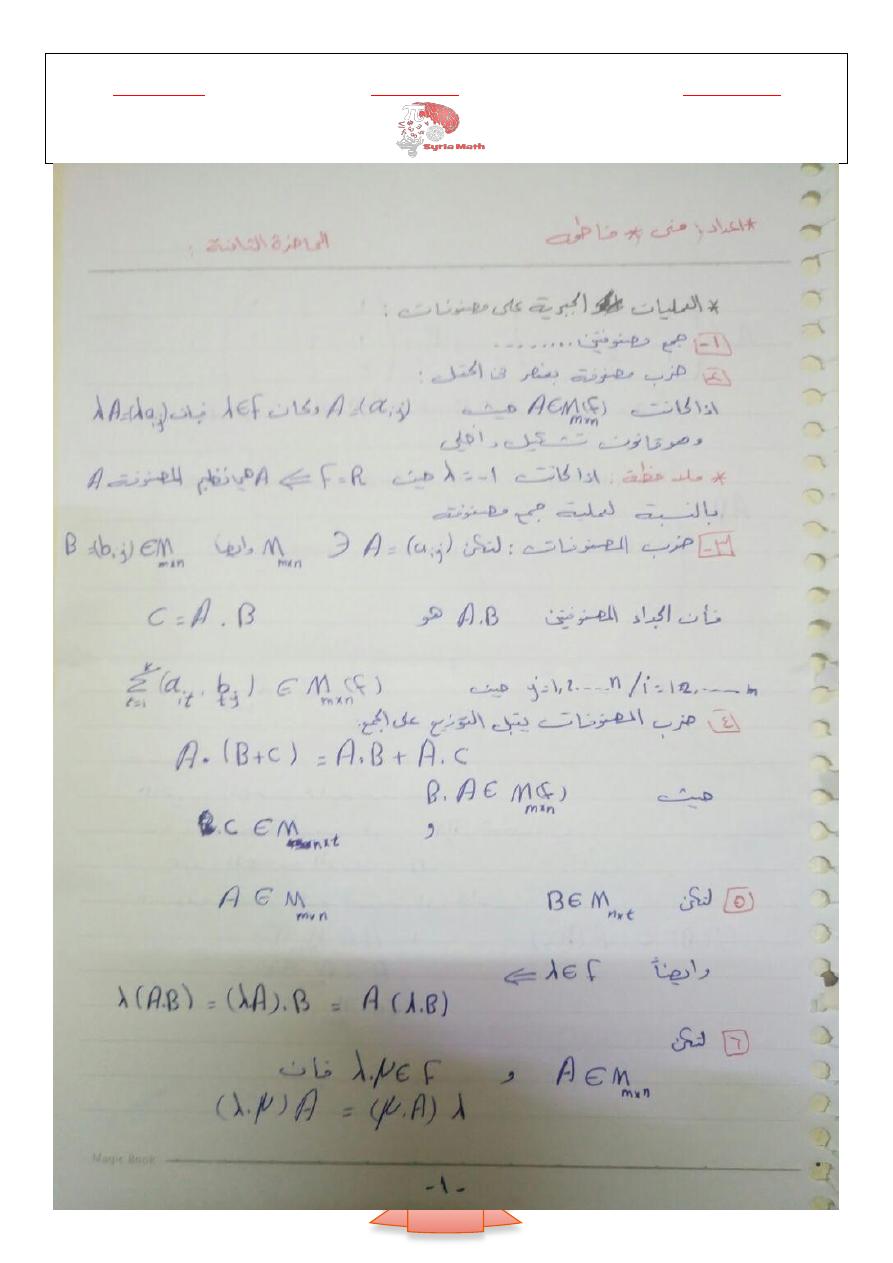 Syria Math
* اعداد: منى * فاطمة المحاضرة الثامنة :
* العمليات الجبرية على مصفوفات :
1- جمع مصفوفتين ........
2- ضرب مصفوفة بعنصر من الحقل :
اذا كانت A∈M(F) m×n حيث A=(aij) وكان λ∈F فإن λA=(λaij)
وهو قانون تشكيل داخلي
* ملاحظة : اذا كانت λ=-1 حيث F=R ⇐ A هي نظيم المصفوفة A
بالنسبة لعملية جمع مصفوفة
3- ضرب المصفوفات : لتكن A=(aij) ∋ Mm×n وايضا B=(bij)∈Mm×n
فأن الجداء المصفوفتين A.B هو C = A . B
حيث j=1,2.....n / i=12......m Σ(ait . btj) ∈ Mm×n(F) t=1
4 ضرب المصفوفات يقبل التوزيع على الجمع.
A. (B+C) = A.B + A.C
حيث B. A∈ M(F) m×n
و .C ∈ Mn×t
5 لتكن B∈Mn×t A ∈ Mm×n
وايضاً λ∈F ⇐
λ(A.B) = (λA).B = A(λ.B)
6 لتكن
A∈Mm×n و λ.μ∈F فان
(λ.μ)A = (μ.A) λ
Magic Book
-1-